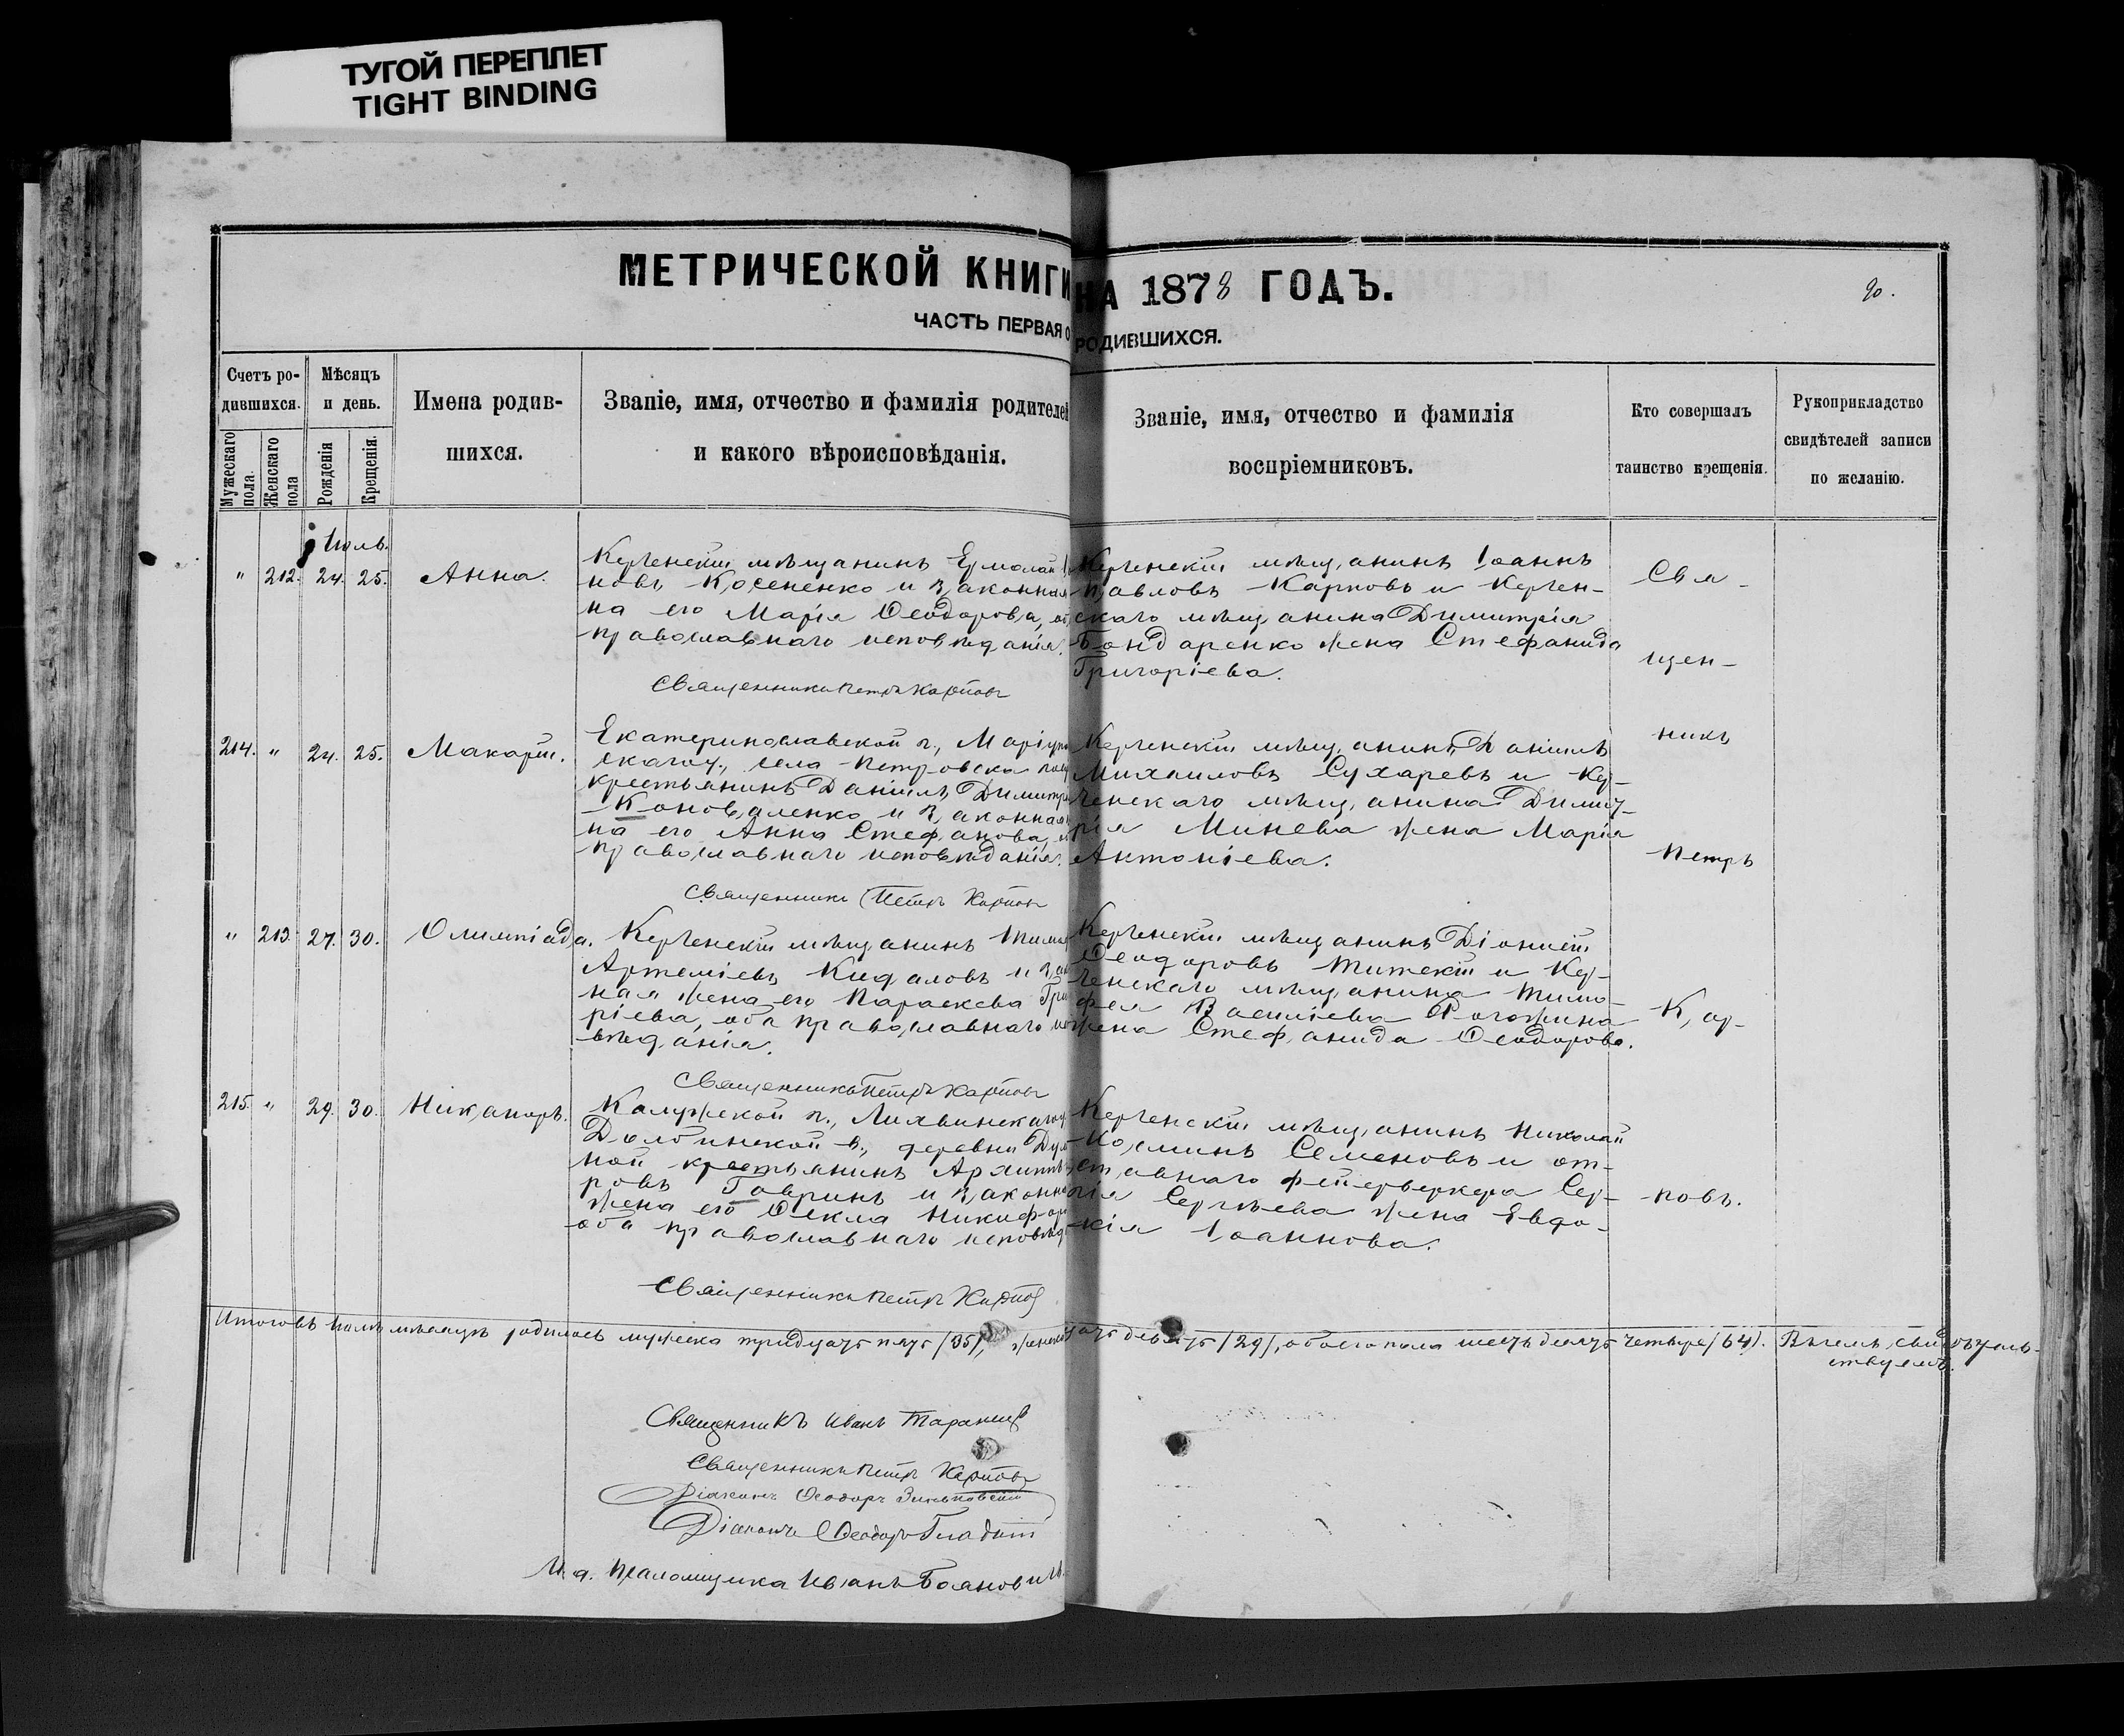 ТУГОЙ ПЕРЕПЛЕТ
TIGHT BINDING
МЕТРИЧЕСКОЙ КНИГИ НА 1878 ГОДЪ.
90.
ЧАСТЬ ПЕРВАЯ О РОДИВШИХСЯ.
Счетъ ро-
дившихся.
Мужескаго пола.
Женскаго пола
Мѣсяцъ
и день.
Рожденія
Крещенія.
Имена родив-
шихся.
Званіе, имя, отчество и фамилія родителей
и какого вѣроисповѣданія.
Званіе, имя, отчество и фамилія
воспріемниковъ.
Кто совершалъ
таинство крещенія.
Рукоприкладство
свидѣтелей записи
по желанію.
Іюль.
" 212. 24. 25. Анна.
Керченскій мѣщанинъ Ермолай
новъ Косененко и законная
на его Марія Ѳеодорова,
православнаго исповѣданія.
Священникъ Петръ Карповъ
Керченскій мѣщанинъ Іоаннъ
Павловъ Карповъ и Керчен-
скаго мѣщанина Димитрія
Бондаренко жена Стефанида
Григоріева.
214. " 24. 25. Макарій.
Екатеринославской г., Маріуп
скаго у., села Петровска
крестьянинъ Даніилъ Димитрі
Коноваленко и законная
на его Анна Стефанова,
православнаго исповѣданія.
Священникъ Петръ Карповъ
Керченскій мѣщанинъ Даніилъ
Михаиловъ Сухаревъ и Кер-
ченскаго мѣщанина Димит-
рія Минева жена Марія
Антоніева.
" 213. 27. 30. Олимпіада.
Керченскій мѣщанинъ Тимо
Артеміевъ Кидаловъ и зак
ная жена его Параскева Гри
ріева, оба православнаго испо
вѣданія.
Священникъ Петръ Карповъ
Керченскій мѣщанинъ Діонисій
Ѳеодоровъ Титскій и Кер-
ченскаго мѣщанина Тимо-
фея Василіева Рогожина
жена Стефанида Ѳеодорова.
215. " 29. 30. Никаноръ.
Калужской г., Лихвинскаго у.
Долбинской в., деревни
ной крестьянинъ Архиппъ
ровъ Гавринъ и законна
жена его Ѳекла Никифоро
оба православнаго исповѣд
Священникъ Петръ Карповъ
Керченскій мѣщанинъ Николай
Косминъ Семеновъ и от-
ставнаго фейерверкера Сер-
гія Сергѣева жена Евдо-
кія Іоаннова.
Свя-
щен-
никъ
Петръ
Кар-
повъ.
Итого въ іюлѣ мѣсяцѣ родилось мужеска тридцать пять (35), женска дцать девять (29), обоего пола шестьдесятъ четыре (64). Въ чемъ свидѣтель-
ствуемъ.
Священникъ Иванъ
Священникъ Петръ Карповъ
Діаконъ Ѳеодоръ Зиньковскій
Діаконъ Ѳеодоръ Гладкій
И. д. псаломщика Иванъ Бояновичъ